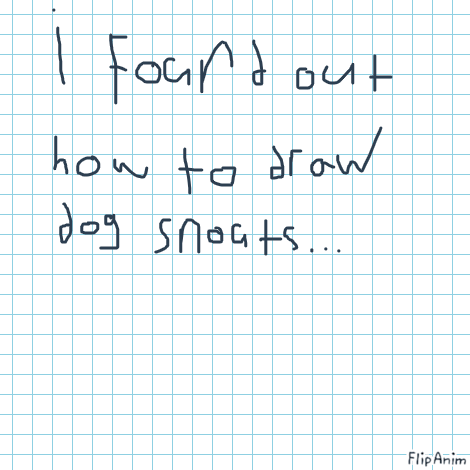 i found out
how to draw
dog snouts...
FlipAnim